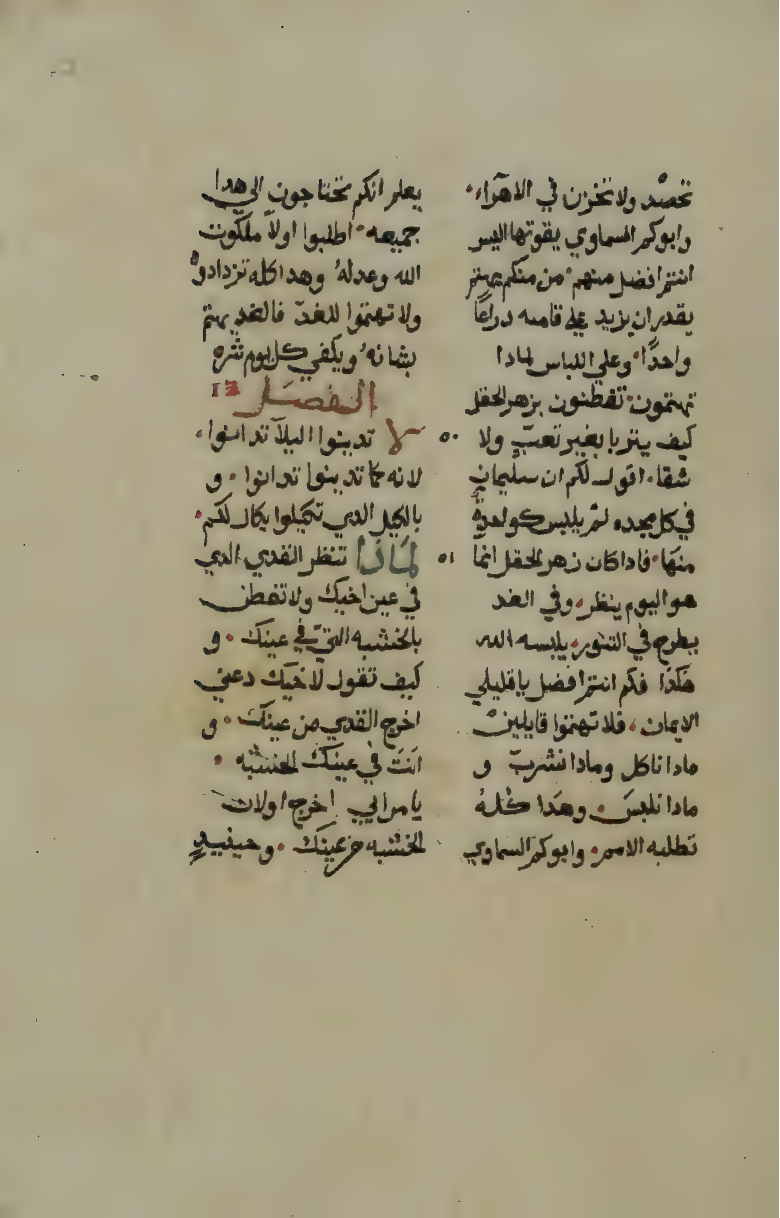 تحصد ولا تخزن في الاهرآء
وابوكم السماوي يقوتها اليس
انتم افضل منهم من منكم يهتم
يقدر ان يزيد علي قامته دراعًا
واحدًا وعلي اللباس لمادا
تهتمون تفطنون بزهر الحقل
كيف يتربا بغير تعبٍ ولا
شقا اقول لكم ان سليمان
في كل مجده لم يلبس كواحدةٍ
منها فاداكان زهر الحقل انمّا
هو اليوم ينظر وفي الغد
يطرح في التنور يلبسه الله
هَكذا فكم انتم افضل ياقليلي
الايمان فلا تهتموا قايلين
مادا ناكل ومادا نشرب و
مادا نلبس وهَدا كُلهُ
تطلبه الامم وابوكم السماوي
يعلم انكم تحتاجون الي هدا
جميعه اطلبوا اولاً ملكوت
الله وعدلهُ وهدا كله تزدادوهُ
ولا تهتموا للغد فالغد يهتم
بشانه ويكفي كل يوم شره
الفصل ١٣
٥٠ لا تدينوا اليلآ تدانوا
لانه كما تدينوا تدانوا و
بالكيل الدي تكيلوا يكال لكم
٥١ لمَادا تنظر القدي الدي
في عين اخيك ولا تفطن
بالخشبه التي في عينك و
كيف تقول لاخيك دعني
اخرج القدي من عينك و
انتَ في عينك الخشبه
يا مرايي اخرج اولاً
الخشبه من عينك وحينيدٍ